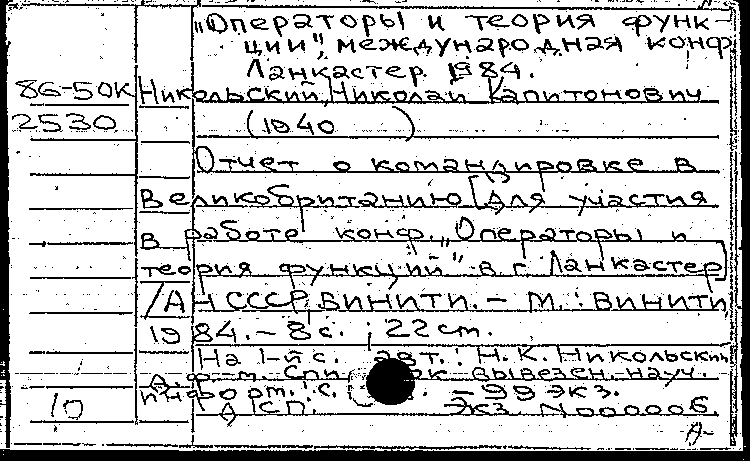 "Операторы и теория функ-
ции", международная конф
Ланкастер 1984.
86-50к Никольский, Николай Капитонович
2530 (1940 )
Отчет о командировке в
Великобританию [для участия
в работе конф. "Операторы и
теория функций" в г. Ланкастер]
/АН СССР, ВИНИТИ. - М.: ВИНИТИ,
1984. - 8 с. ; 22 см.
На 1-й с. авт.: Н.К. Никольский,
вывезен. науч.
с. - 99 экз.
10 Экз N000006.